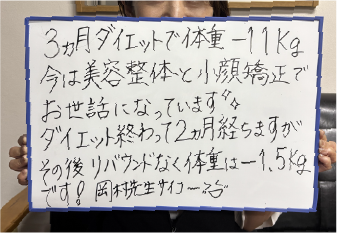 3ヵ月ダイエットで体重-11Kg
今は美容整体と小顔矯正で
お世話になっています
ダイエット終わって2ヵ月経ちますが
その後リバウンドなく体重は-1.5Kg
です! 岡村先生サイコー